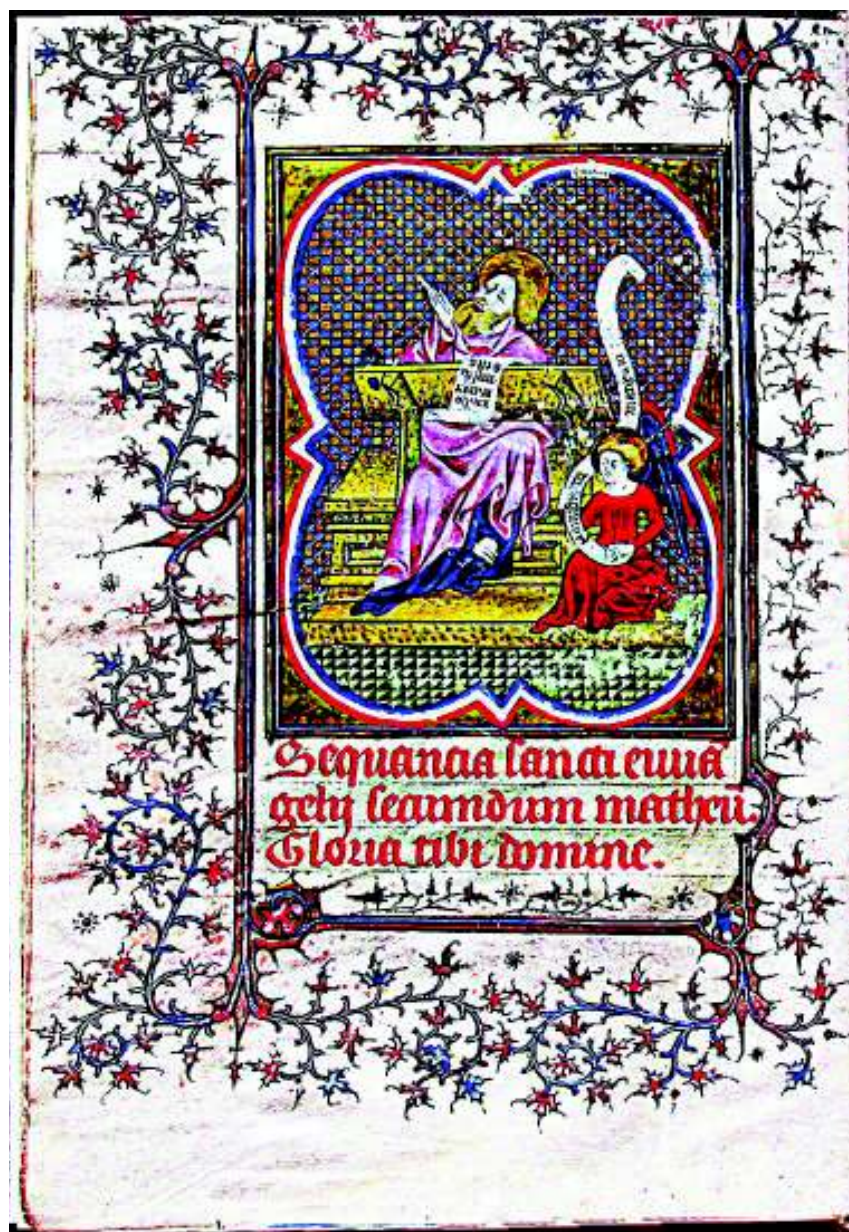 Sequancia sancti euua
gelij secundum matheu.
Gloria tibi domine.